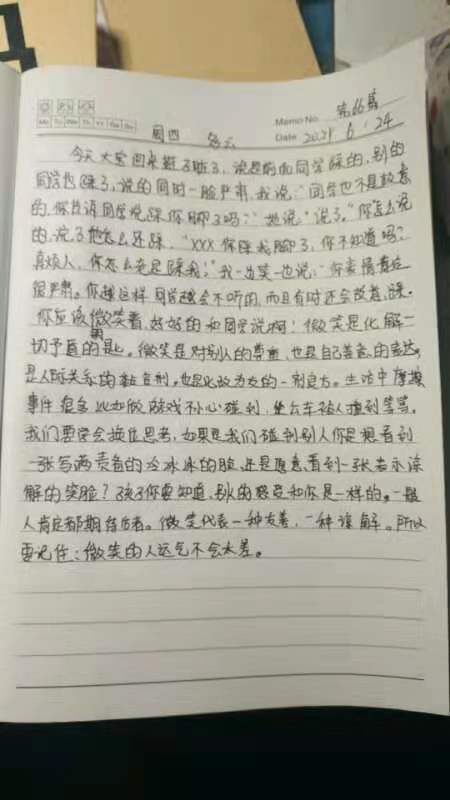 第66篇
Memo No.
Mo Tu We Th Fr Sa Su
周四 多云 Date 2021 6.24
今天大宝回来鞋子脏了，说是前面同学踩的，别的
同学也踩了，说的同时一脸严肃，我说："同学也不是故意
的，你告诉同学说踩你脚了吗？" 她说"说了。"你怎么说
的，说了他怎么还踩，"XXX你踩我脚了，你不知道吗？
真烦人，你怎么老是踩我！"我一边笑一边说："你表情看起
很严肃。你越这样同学越会不听的，而且有时还会故意踩。
你应该微笑着，好好的和同学说啊！微笑是化解一
切矛盾的良。微笑是对别人的尊重，也是自己善意的表达，
是人际关系的粘合剂，也是化敌为友的一剂良方。生活中摩擦
事件很多比如做游戏不小心碰到，坐公车被人撞到等等。
我们要学会换位思考，如果是我们碰到别人你是想看到
一张写满责备的冷冰冰的脸，还是愿意看到一张表示谅
解的笑脸？孩子你要知道，别人的感受和你是一样的。一般
人肯定都期待后者。微笑代表一种友善，一种谅解。所以
要记住：微笑的人运气不会太差。